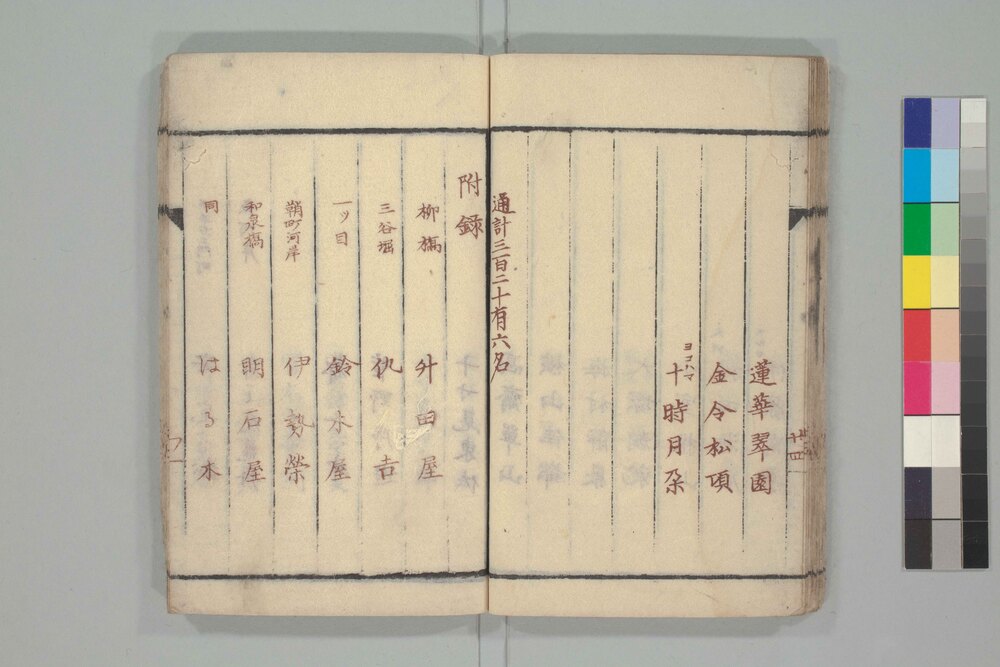 蓮華翠園
金令松頃
ヨコハマ
十時月朶
通計三百二十有六名
附録
柳橋 舛田屋
三谷堀 仇吉
一ツ目 鈴木屋
鞘町河岸 伊勢榮
和泉橋 明石屋
同 はる本
廿四